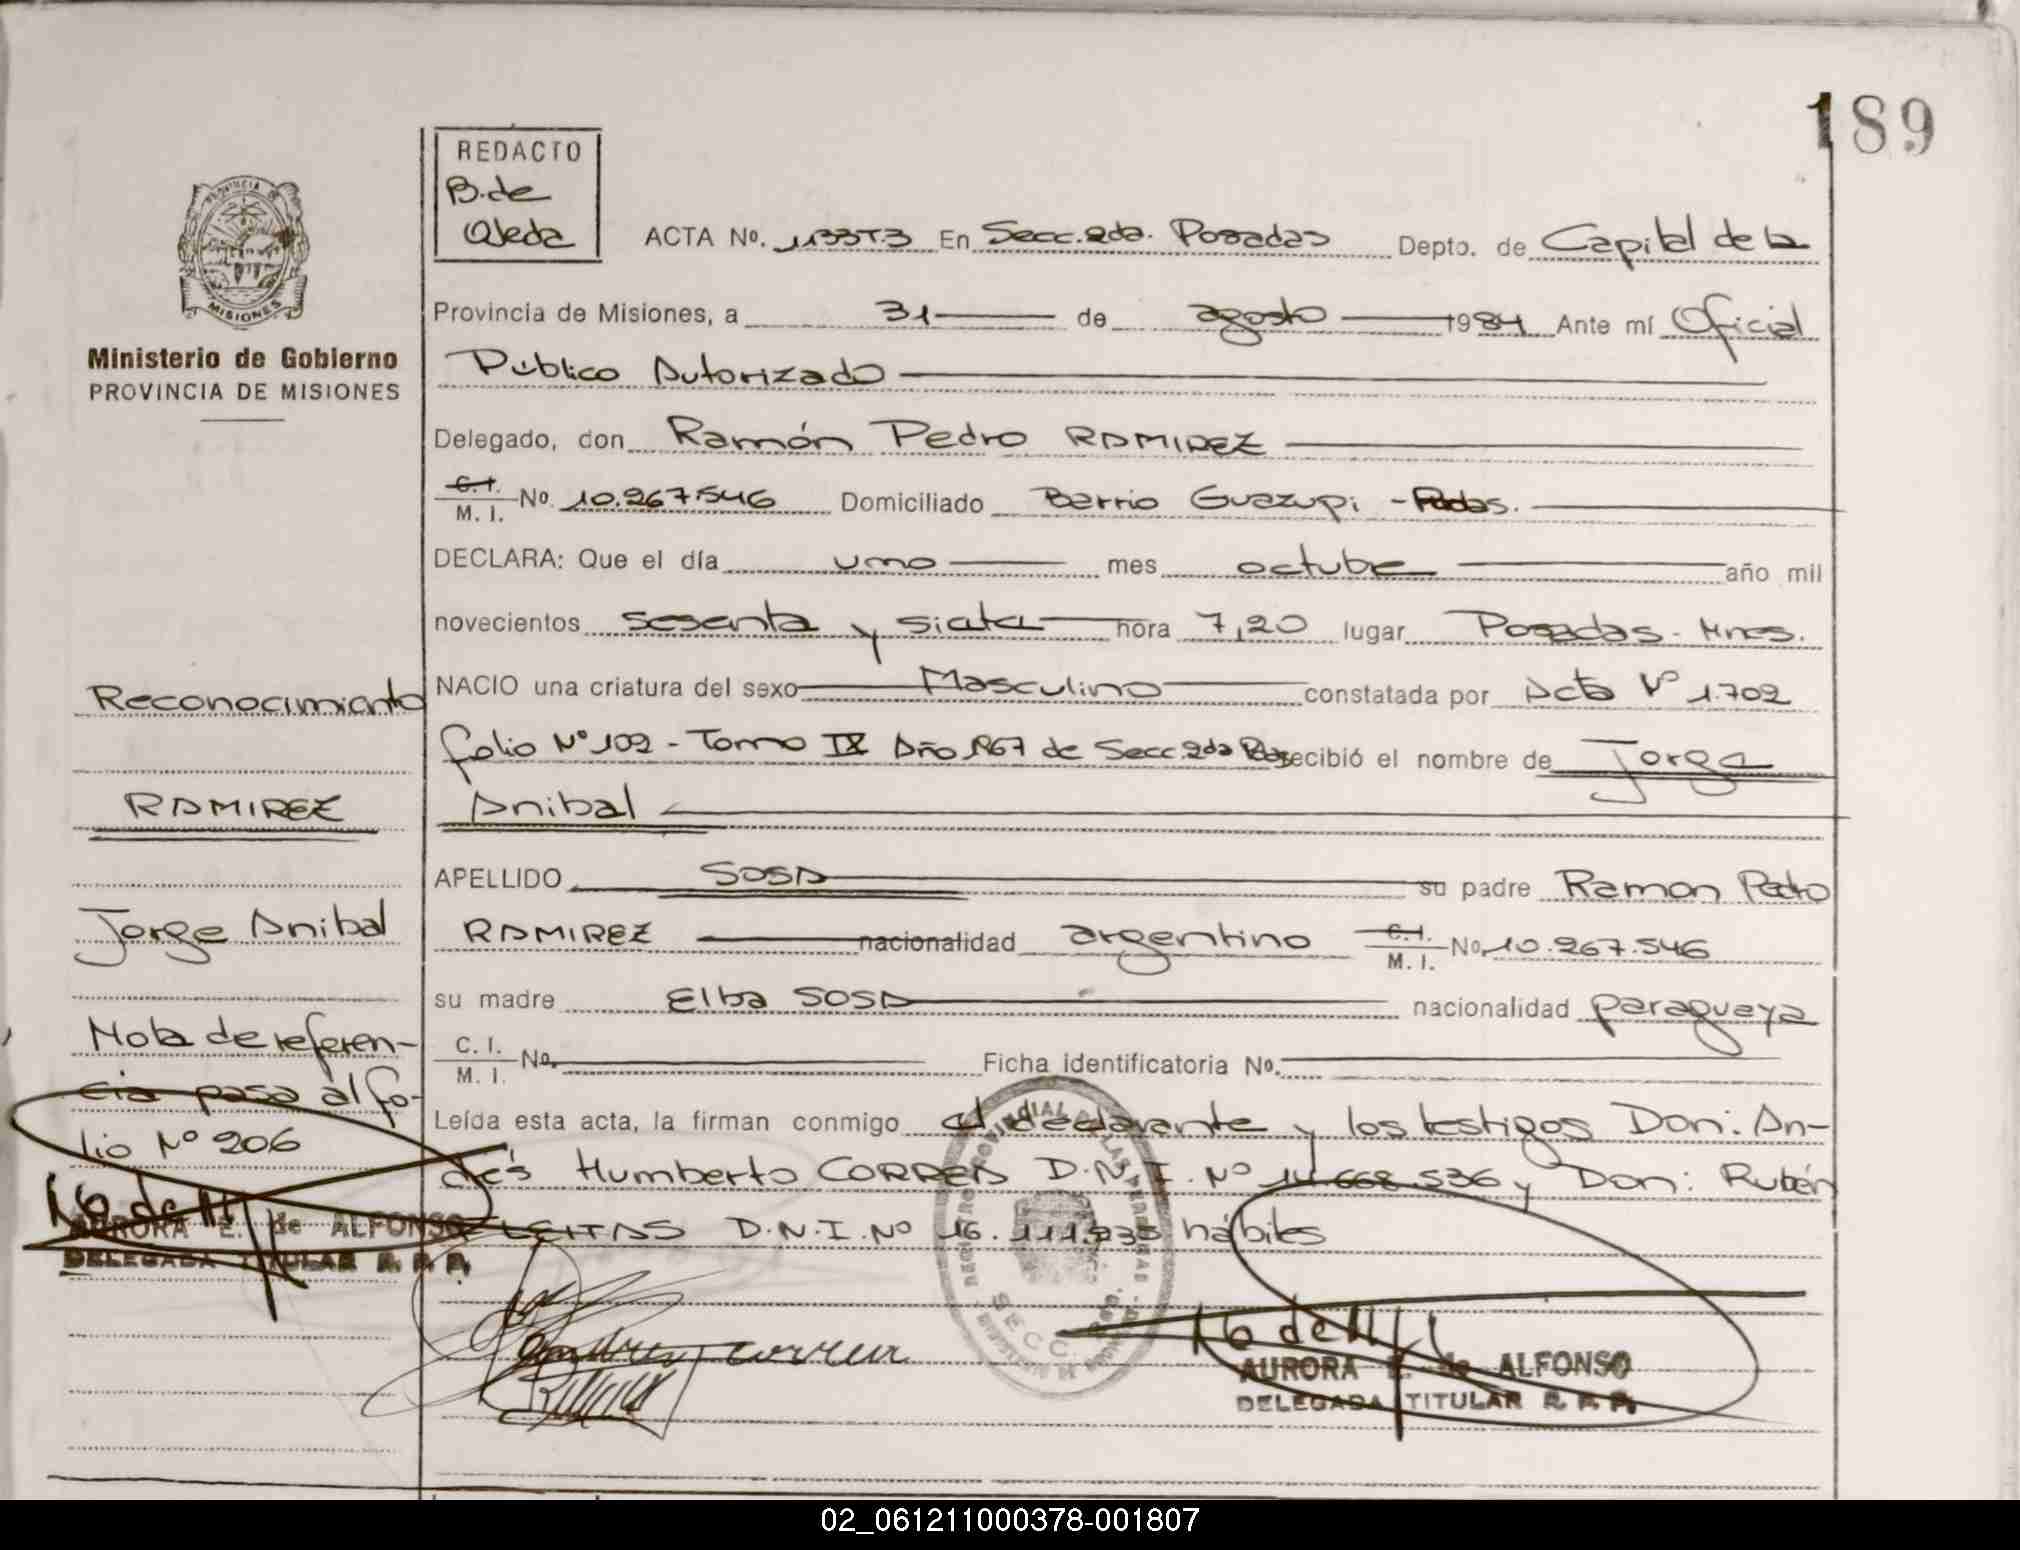 189
REDACTO
B. de
Ojeda
PROVINCIA DE
MISIONES
Ministerio de Gobierno
PROVINCIA DE MISIONES
ACTA No. 1133T.3 En Secc. 2da. Posadas Depto. de Capital de la
Provincia de Misiones, a 31 de agosto 1984 Ante mí Oficial
Publico Autorizado
Delegado, don Ramón Pedro RAMIREZ
C. I. / M. I. No. 10.267.546 Domiciliado Barrio Guazupi - Pdas.
DECLARA: Que el día uno mes octubre año mil
novecientos sesenta y siete hora 7,20 lugar Posadas - Mnes.
NACIO una criatura del sexo Masculino constatada por Acta Nº 1.702
folio Nº 102 - Tomo IX Año 1967 de Secc. 2da Pdas recibió el nombre de Jorge
Anibal
APELLIDO SOSA su padre Ramon Pedro
RAMIREZ nacionalidad argentino C. I. / M. I. No. 10.267.546
su madre Elba SOSA nacionalidad paraguaya
C. I. / M. I. No. Ficha identificatoria No.
Leída esta acta, la firman conmigo el declarante y los testigos Don: An-
drés Humberto CORREA D.N.I. Nº 14.668.536 y Don: Rubén
LEITAS D.N.I. Nº 16.111.935 hábiles
Reconocimiento
RAMIREZ
Jorge Anibal
Nota de referen-
cia pasa al fo-
lio Nº 206
AURORA E. de ALFONSO
DELEGADA TITULAR R. P. P.
Andres correa
SECC.
AURORA E. de ALFONSO
DELEGADA TITULAR R. P. P.
02_061211000378-001807